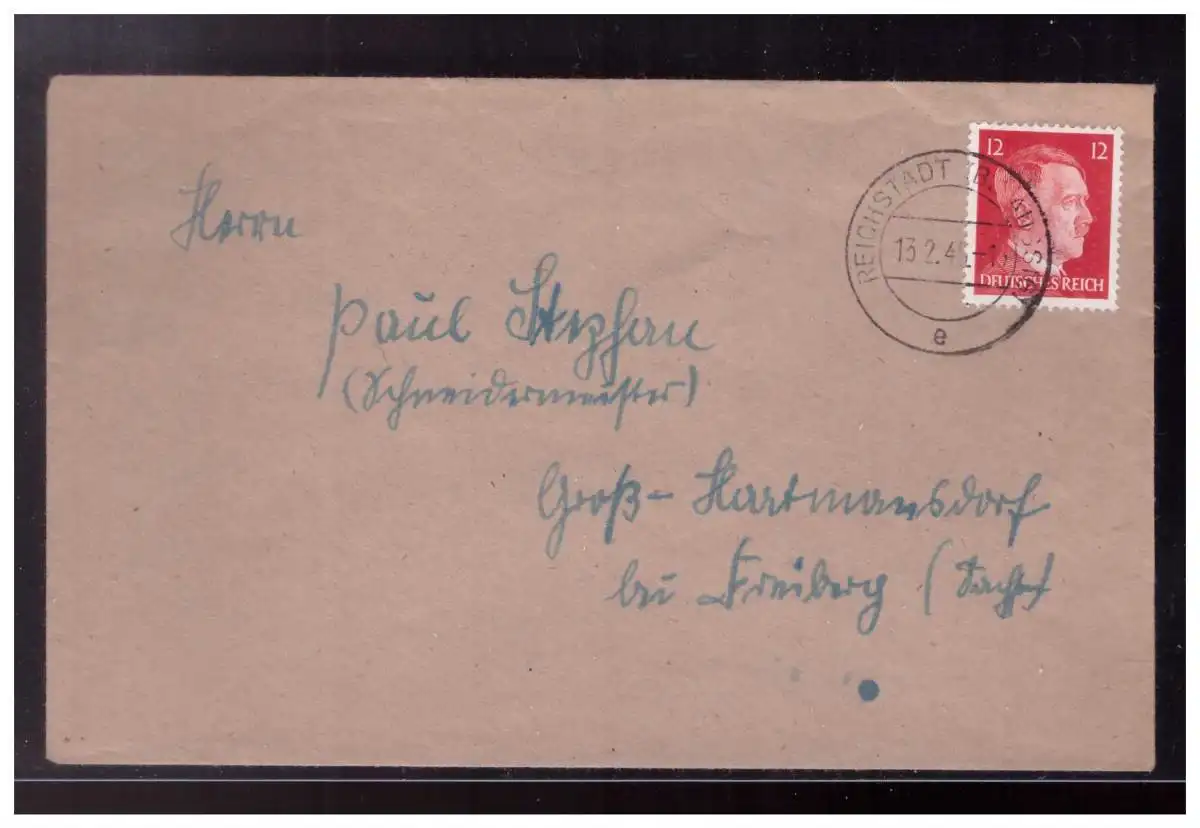 12 12
DEUTSCHES REICH
REICHSTADT (B.
13.2.4
e
Herrn
Paul Stephan
(Schneidermeister)
Groß-Hartmannsdorf
bei Freiberg (Sachs)